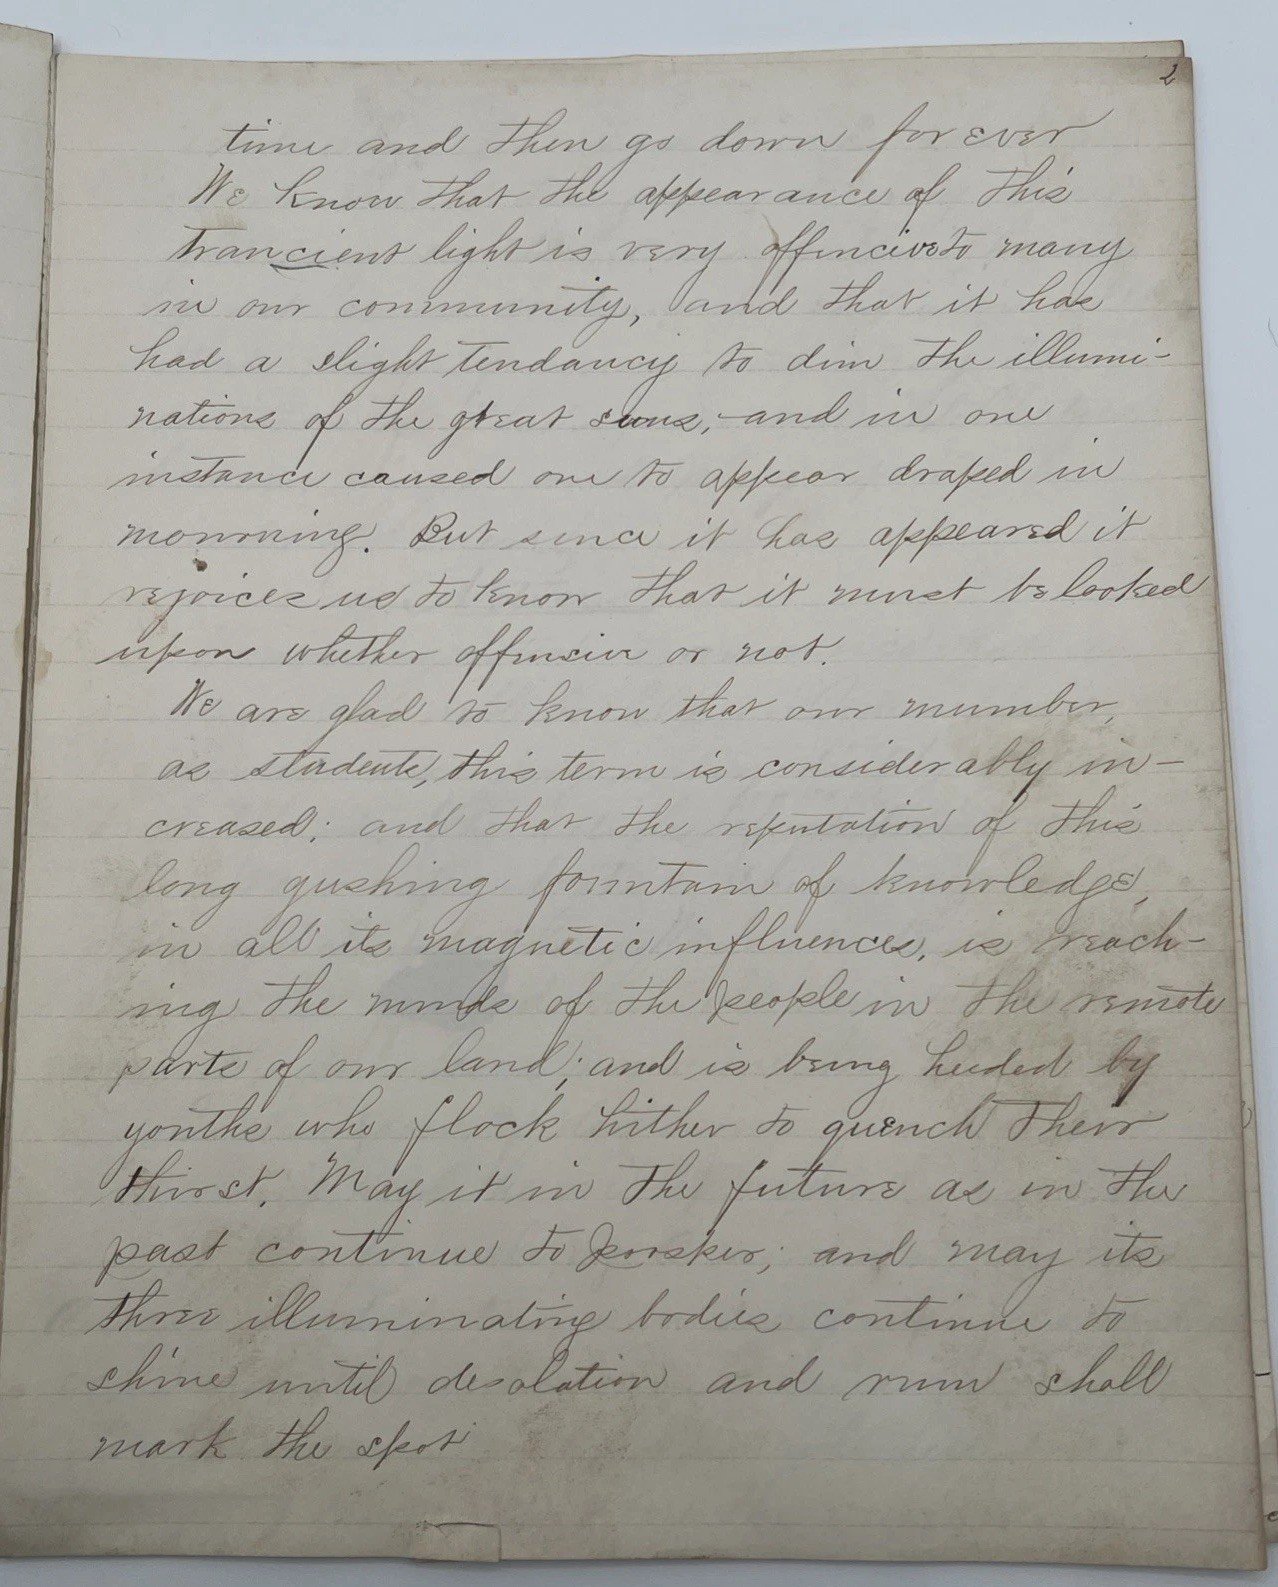 2
time and then go down forever
We know that the appearance of this
trancient light is very offencive to many
in our community, and that it has
had a slight tendancy to dim the illumi-
nations of the great suns, and in one
instance caused one to appear draped in
mourning. But since it has appeared it
rejoices us to know that it must be looked
upon whether offensive or not.
We are glad to know that our number,
as students, this term is considerably in-
creased; and that the reputation of this
long gushing fountain of knowledge,
in all its magnetic influences, is reach-
ing the minds of the people in the remote
parts of our land; and is being heeded by
youths who flock hither to quench their
thirst. May it in the future as in the
past continue to prosper; and may its
three illuminating bodies continue to
shine until desolation and ruin shall
mark the spot